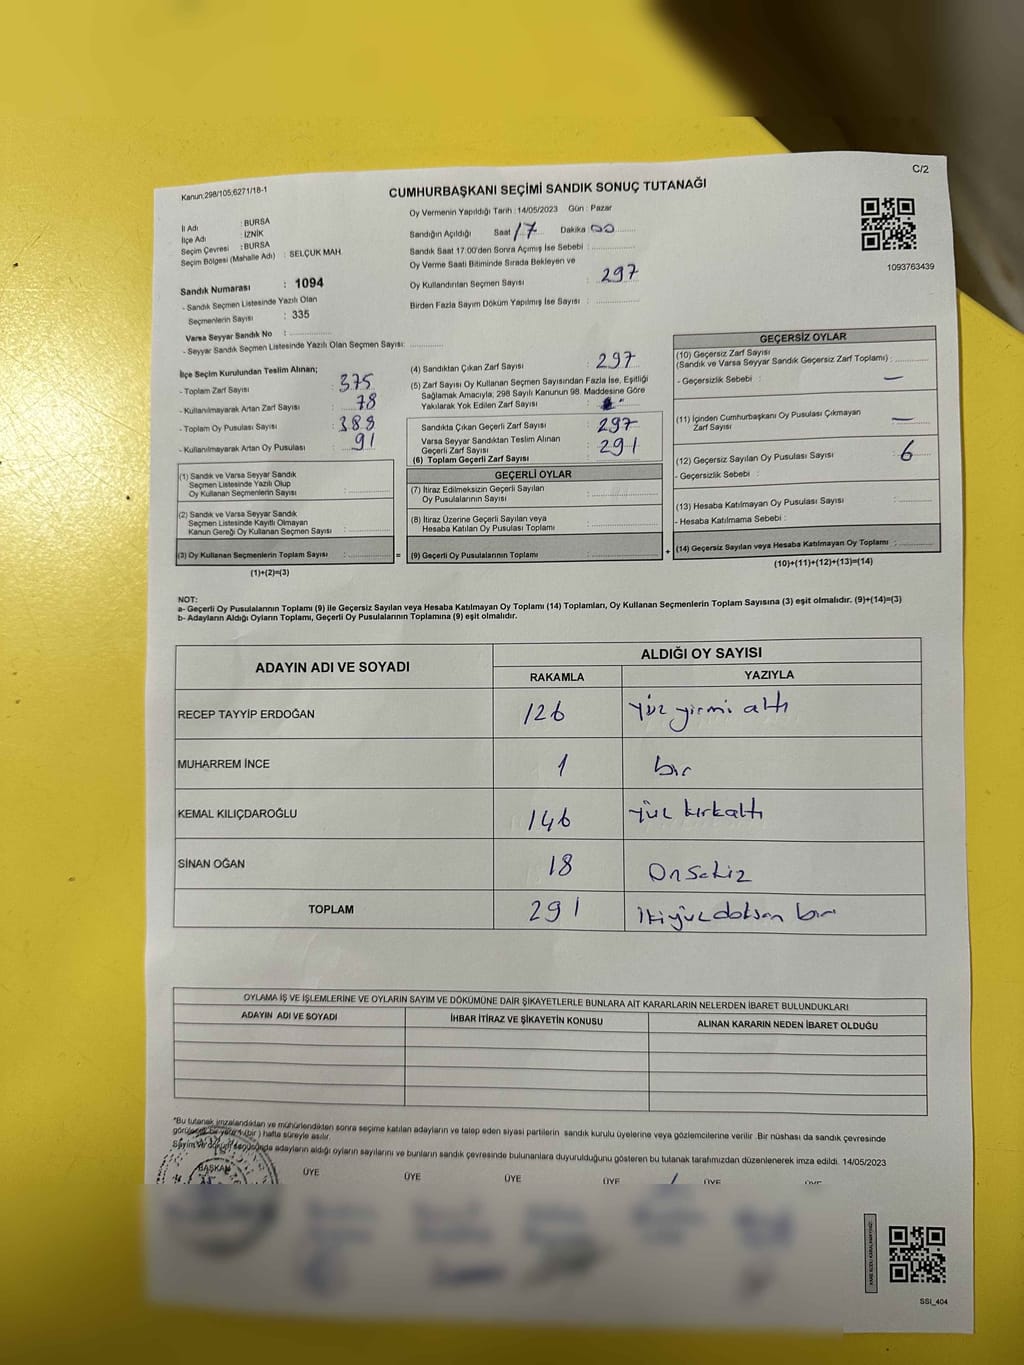 C/2
Kanun:298/105;6271/18-1
CUMHURBAŞKANI SEÇİMİ SANDIK SONUÇ TUTANAĞI
1093763439
İl Adı : BURSA
İlçe Adı : İZNİK
Seçim Çevresi : BURSA
Seçim Bölgesi (Mahalle Adı) : SELÇUK MAH
Sandık Numarası : 1094
- Sandık Seçmen Listesinde Yazılı Olan
Seçmenlerin Sayısı : 335
Varsa Seyyar Sandık No :
- Seyyar Sandık Seçmen Listesinde Yazılı Olan Seçmen Sayısı:
Oy Vermenin Yapıldığı Tarih : 14/05/2023 Gün : Pazar
Sandığın Açıldığı Saat 17 Dakika 00
Sandık Saat 17:00'den Sonra Açılmış İse Sebebi :
Oy Verme Saati Bitiminde Sırada Bekleyen ve
Oy Kullandırılan Seçmen Sayısı : 297
Birden Fazla Sayım Döküm Yapılmış İse Sayısı :
İlçe Seçim Kurulundan Teslim Alınan;
- Toplam Zarf Sayısı : 375
- Kullanılmayarak Artan Zarf Sayısı : 78
- Toplam Oy Pusulası Sayısı : 388
- Kullanılmayarak Artan Oy Pusulası : 91
(1) Sandık ve Varsa Seyyar Sandık
Seçmen Listesinde Yazılı Olup
Oy Kullanan Seçmenlerin Sayısı :
(2) Sandık ve Varsa Seyyar Sandık
Seçmen Listesinde Kayıtlı Olmayan
Kanun Gereği Oy Kullanan Seçmen Sayısı :
(3) Oy Kullanan Seçmenlerin Toplam Sayısı : =
(1)+(2)=(3)
(4) Sandıktan Çıkan Zarf Sayısı : 297
(5) Zarf Sayısı Oy Kullanan Seçmen Sayısından Fazla İse, Eşitliği
Sağlamak Amacıyla; 298 Sayılı Kanunun 98. Maddesine Göre
Yakılarak Yok Edilen Zarf Sayısı :
Sandıkta Çıkan Geçerli Zarf Sayısı : 297
Varsa Seyyar Sandıktan Teslim Alınan
Geçerli Zarf Sayısı : 291
(6) Toplam Geçerli Zarf Sayısı
GEÇERLİ OYLAR
(7) İtiraz Edilmeksizin Geçerli Sayılan
Oy Pusulalarının Sayısı :
(8) İtiraz Üzerine Geçerli Sayılan veya
Hesaba Katılan Oy Pusulası Toplamı :
(9) Geçerli Oy Pusulalarının Toplamı : +
GEÇERSİZ OYLAR
(10) Geçersiz Zarf Sayısı
(Sandık ve Varsa Seyyar Sandık Geçersiz Zarf Toplamı) :
- Geçersizlik Sebebi : —
(11) İçinden Cumhurbaşkanı Oy Pusulası Çıkmayan
Zarf Sayısı : —
(12) Geçersiz Sayılan Oy Pusulası Sayısı : 6
- Geçersizlik Sebebi :
(13) Hesaba Katılmayan Oy Pusulası Sayısı :
- Hesaba Katılmama Sebebi :
(14) Geçersiz Sayılan veya Hesaba Katılmayan Oy Toplamı :
(10)+(11)+(12)+(13)=(14)
NOT:
a- Geçerli Oy Pusulalarının Toplamı (9) ile Geçersiz Sayılan veya Hesaba Katılmayan Oy Toplamı (14) Toplamları, Oy Kullanan Seçmenlerin Toplam Sayısına (3) eşit olmalıdır. (9)+(14)=(3)
b- Adayların Aldığı Oyların Toplamı, Geçerli Oy Pusulalarının Toplamına (9) eşit olmalıdır.
ADAYIN ADI VE SOYADI ALDIĞI OY SAYISI
RAKAMLA YAZIYLA
RECEP TAYYİP ERDOĞAN 126 yüz yirmi altı
MUHARREM İNCE 1 bir
KEMAL KILIÇDAROĞLU 146 yüz kırkaltı
SİNAN OĞAN 18 Onsekiz
TOPLAM 291 İkiyüzdoksan bir
OYLAMA İŞ VE İŞLEMLERİNE VE OYLARIN SAYIM VE DÖKÜMÜNE DAİR ŞİKAYETLERLE BUNLARA AİT KARARLARIN NELERDEN İBARET BULUNDUKLARI
ADAYIN ADI VE SOYADI İHBAR İTİRAZ VE ŞİKAYETİN KONUSU ALINAN KARARIN NEDEN İBARET OLDUĞU
*Bu tutanak imzalandıktan ve mühürlendikten sonra seçime katılan adayların ve talep eden siyasi partilerin sandık kurulu üyelerine veya gözlemcilerine verilir. Bir nüshası da sandık çevresinde
görülecek bir yere 1 (bir) hafta süreyle asılır.
Sayım ve döküm sonucunda adayların aldığı oyların sayılarını ve bunların sandık çevresinde bulunanlara duyurulduğunu gösteren bu tutanak tarafımızdan düzenlenerek imza edildi. 14/05/2023
BAŞKAN ÜYE ÜYE ÜYE ÜYE ÜYE ÜYE
SSI_404